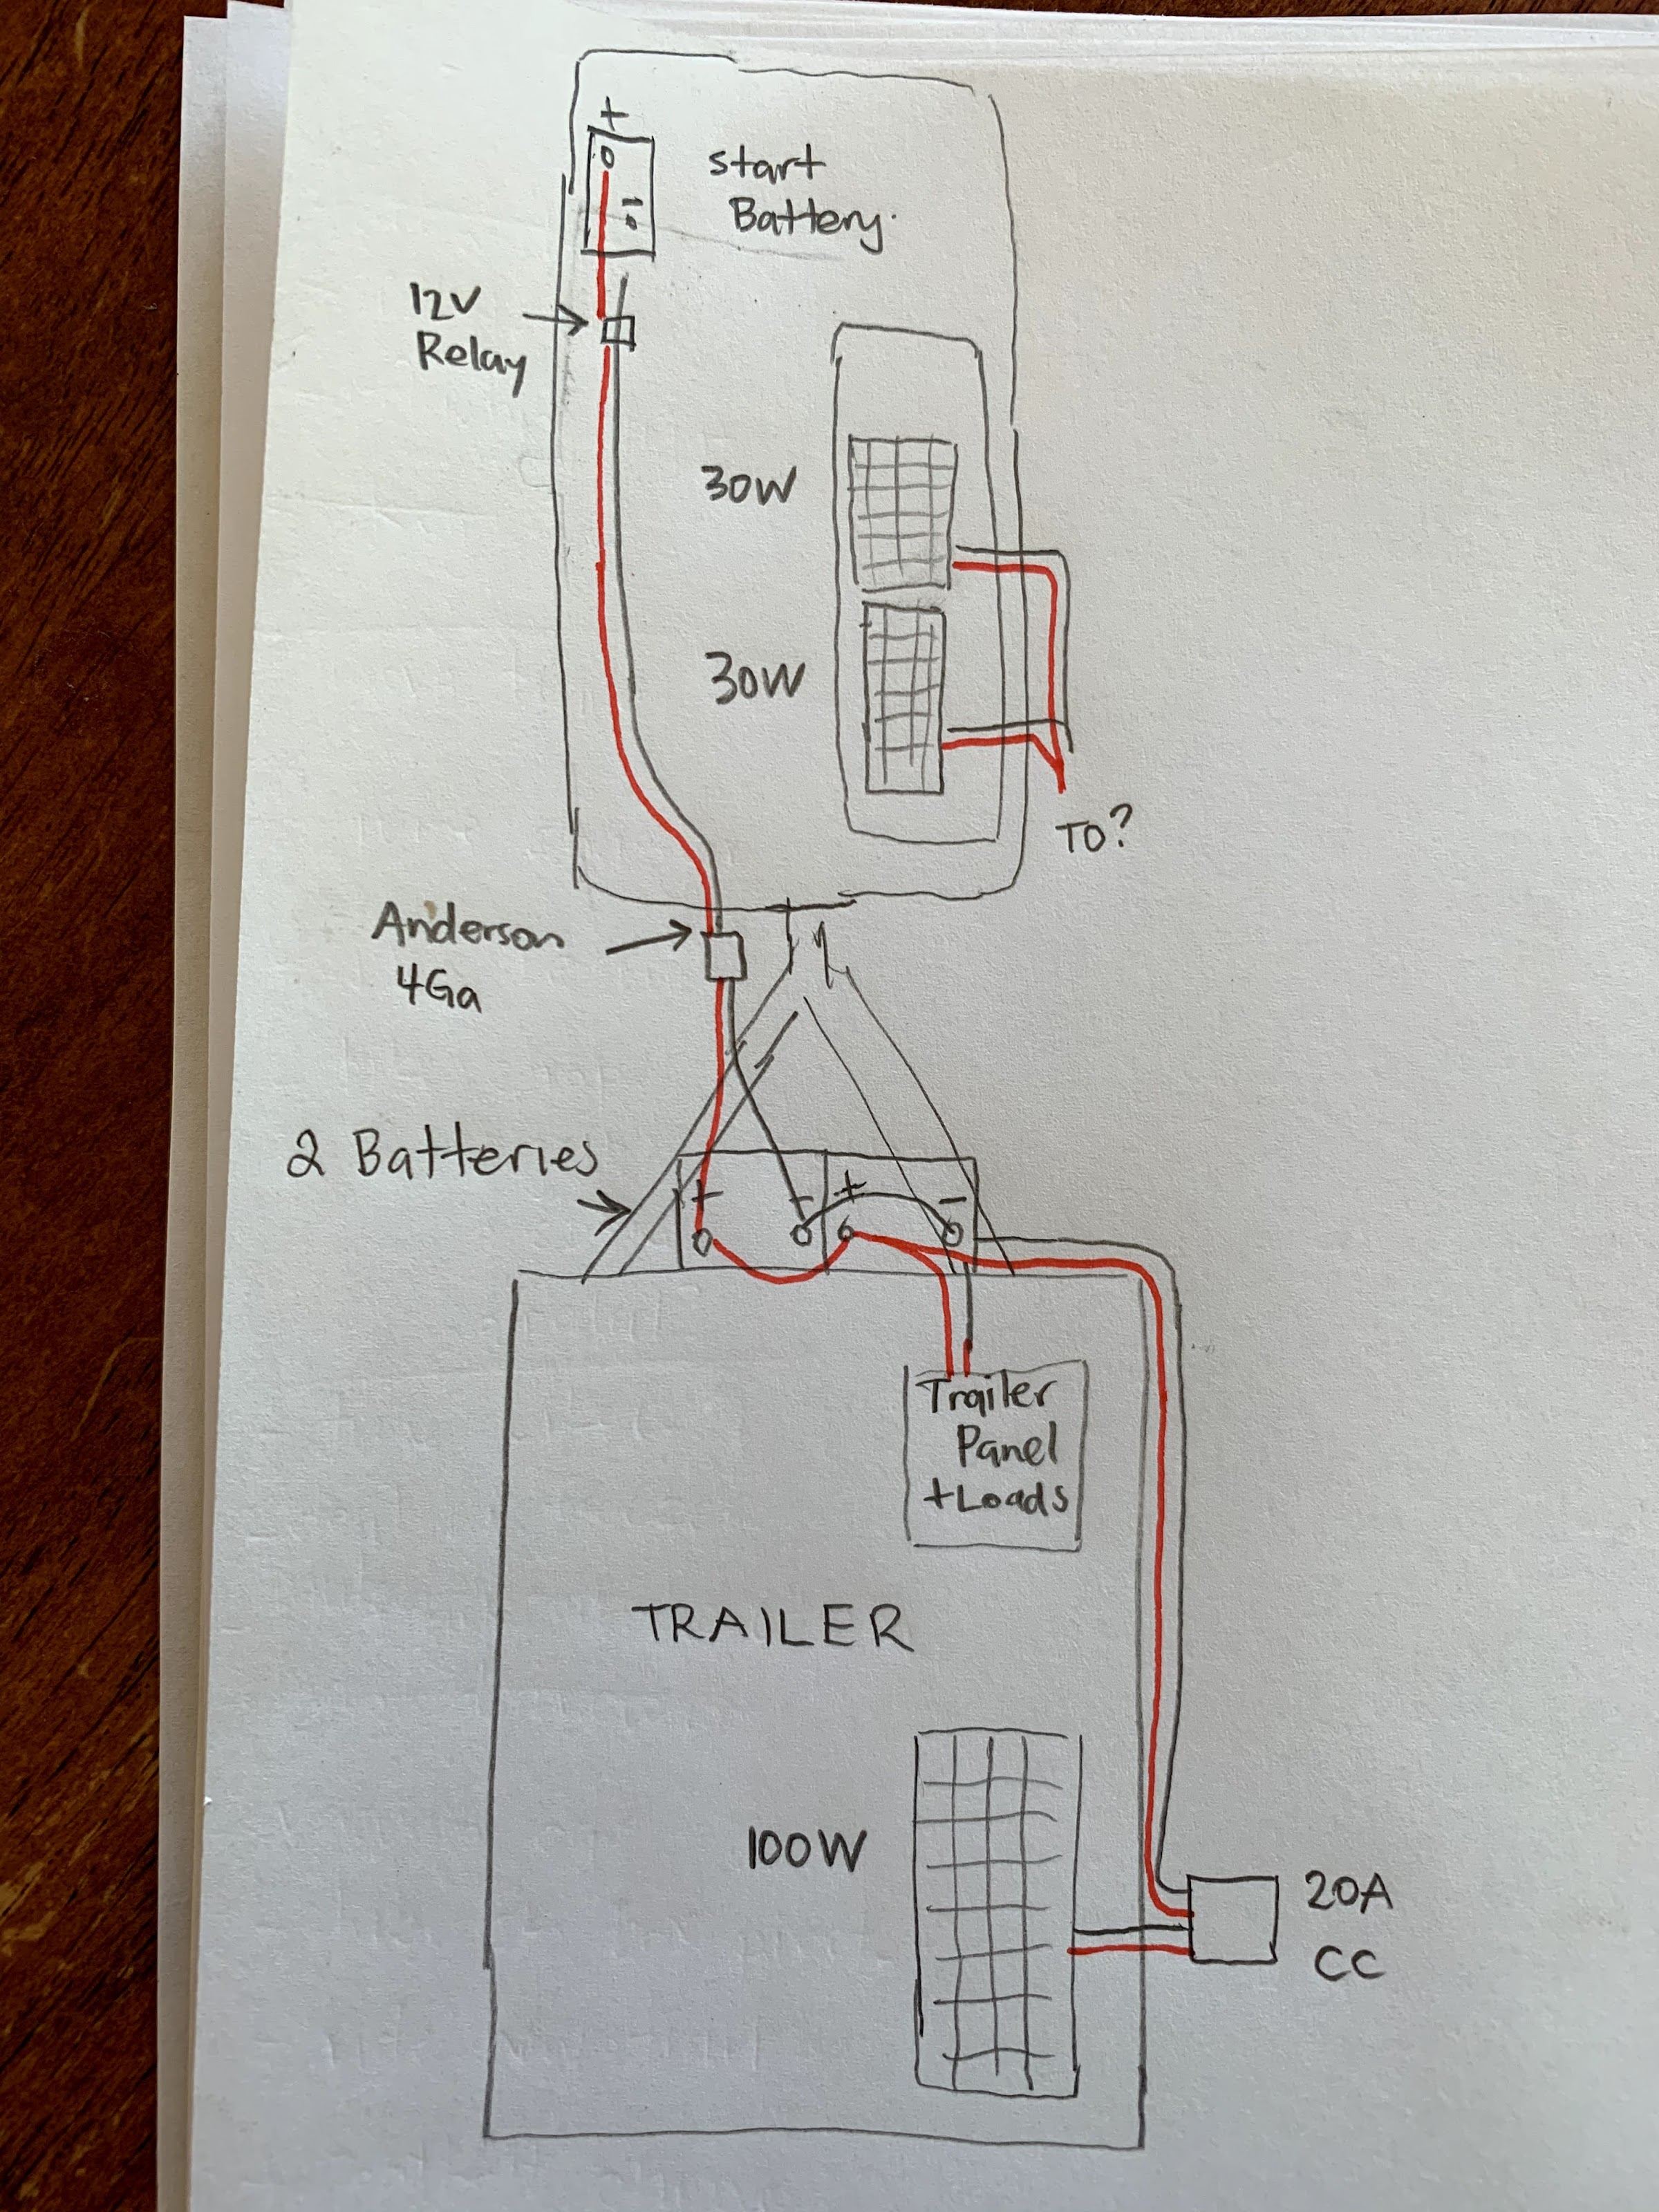 +
start
Battery.
-
12V
Relay
30W
30W
TO?
Anderson
4Ga
2 Batteries
+ - + -
Trailer
Panel
+Loads
TRAILER
100W
20A
CC